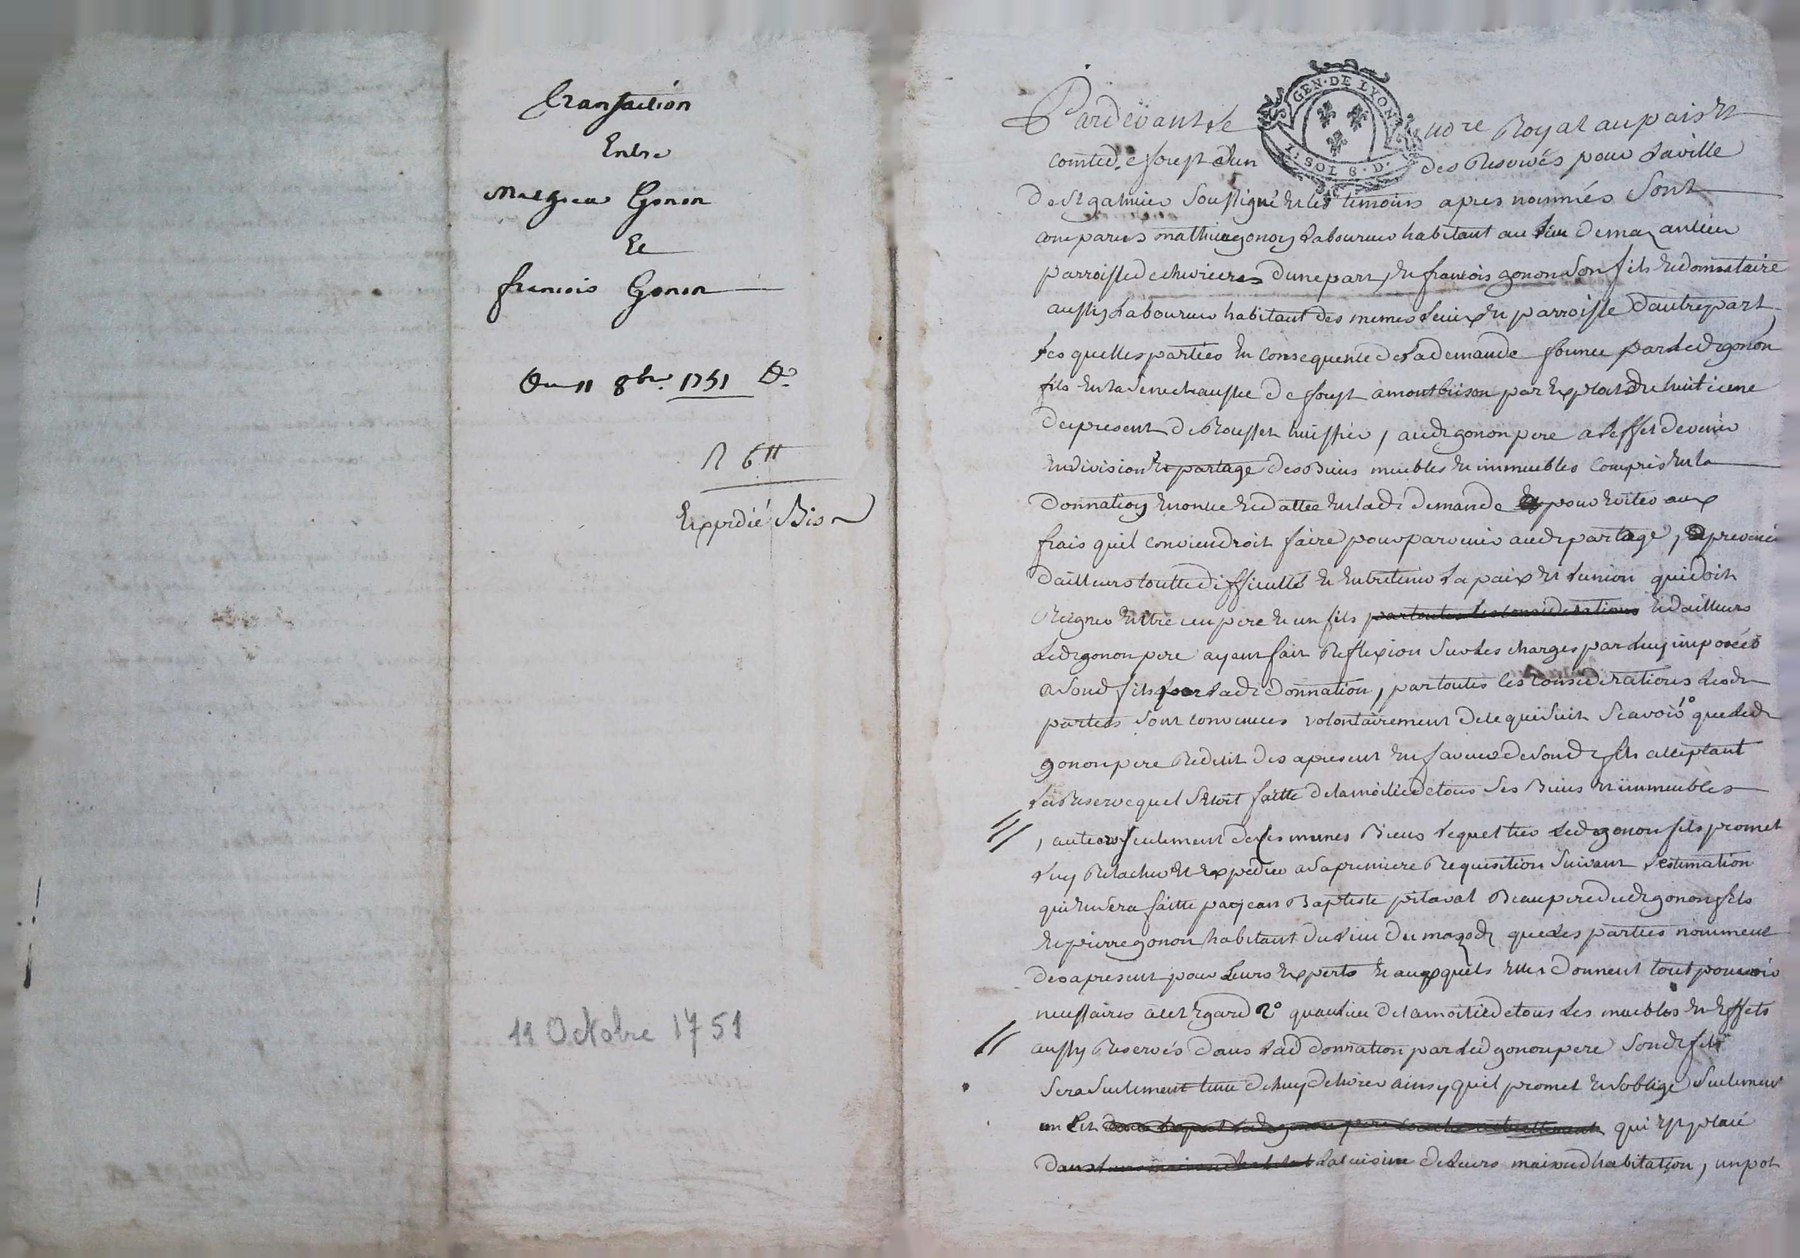 transaction
Entre
Mathieu Gonon
Et
francois Gonon
Du 11 8bre 1751 D.
R 6tt
Expedié Bis
11 Octobre 1751
GEN. DE LYON
1. SOL 8. D.
Pardevant le no.re Royal au pais et
comté de forest & un des Reservés pour la ville
De St galmier soussigné et les temoins apres nommés sont
comparus mathieu gonon laboureur habitant au lieu de mazantieu
parroisse de chevrieres d'une part, et francois gonon son fils et donnataire
aussy laboureur habitant des memes lieux et parroisse d'autre part
les quelles parties en consequence de la demande formee par led gonon
fils en la senechaussée de forest a montbrison par exploit du huitieme
du present de Rousset huissier, aud gonon pere a l'effet de venir
en division et partage des Biens meubles et immeubles compris en la
donnation enoncee et dattee en lad demande pour eviter aux
frais quil conviendroit faire pour parvenir aud partage, prevenir
d'ailleurs toutte difficulté et entretenir la paix et l'union qui doit
Regner entre un pere et un fils partoutes les considerations et dailleurs
led gonon pere ayant fait Reflexion sur les charges par luy imposées
a sond fils par lad donnation, par toutes les considerations lesd
parties sont convenues volontairement de ce qui suit scavoir 1º que led
gonon pere Reduit des apresent en faveur de sond fils acceptant
la Reserve quil s'etoit faitte de la moitié de tous ses Biens et immeubles
, au tier seulement de ses memes Biens lequel tier led gonon fils promet
luy Relacher et expedier a sa premiere Requisition suivant l'estimation
qui en sera faitte par jean Baptiste pitaval Beaupere dud gonon fils
et pierre gonon habitant du lieu du mazod que les parties nomment
des apresent pour leurs experts et auxquels elles donnent tout pouvoir
necessaires a cet egard 2º qu'au lieu de la moitié de tous les meubles et effets
aussy Reservés dans lad donnation par led gonon pere sond fils
sera seulement tenu de luy delivrer ainsy quil promet et s'oblige seulement
un lit qui est placé
dans la cuisine de leurs maison d'habitation, un pot